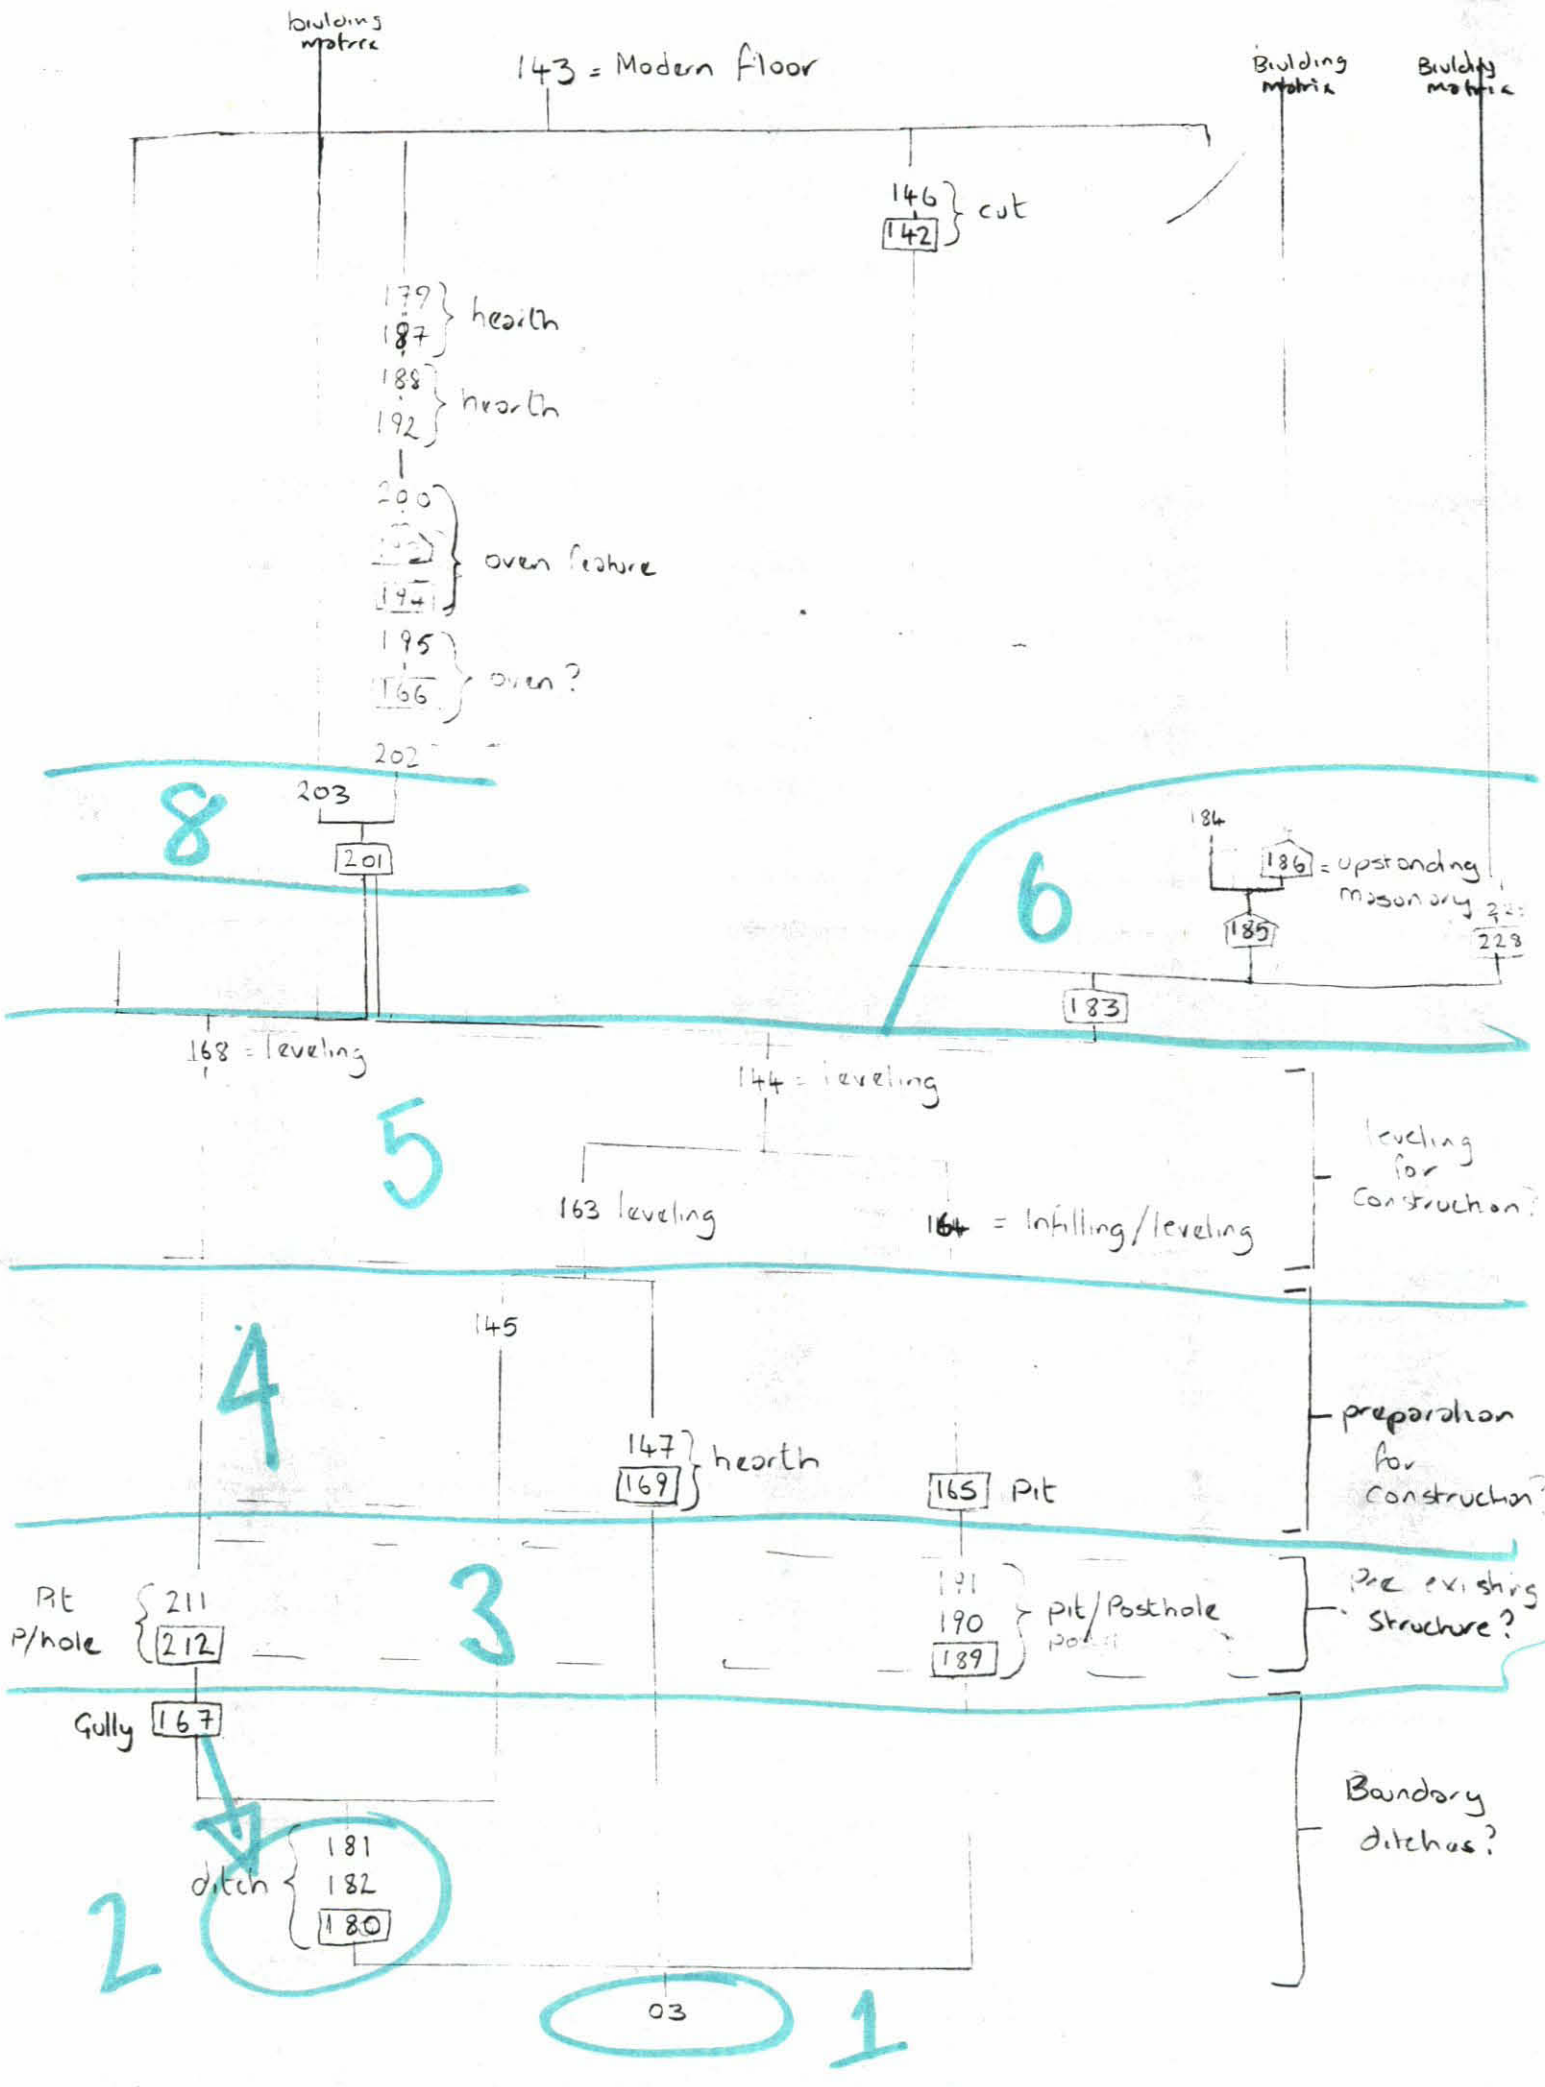 building
matrix
143 = Modern floor
Building
matrix
Building
matrix
146
142
cut
179
187
hearth
188
192
hearth
200
194
oven feature
195
166
oven?
202
8
203
201
6
184
186 = upstanding
masonary
185
228
183
168 = leveling
144 = leveling
5
leveling
for
Construction?
163 leveling
164 = Infilling/leveling
4
145
147
169
hearth
165 Pit
preparation
for
construction?
3
Pit
P/hole
211
212
191
190
189
pit/Posthole
Pre existing
Structure?
Gully 167
Boundary
ditches?
2
ditch
181
182
180
03
1